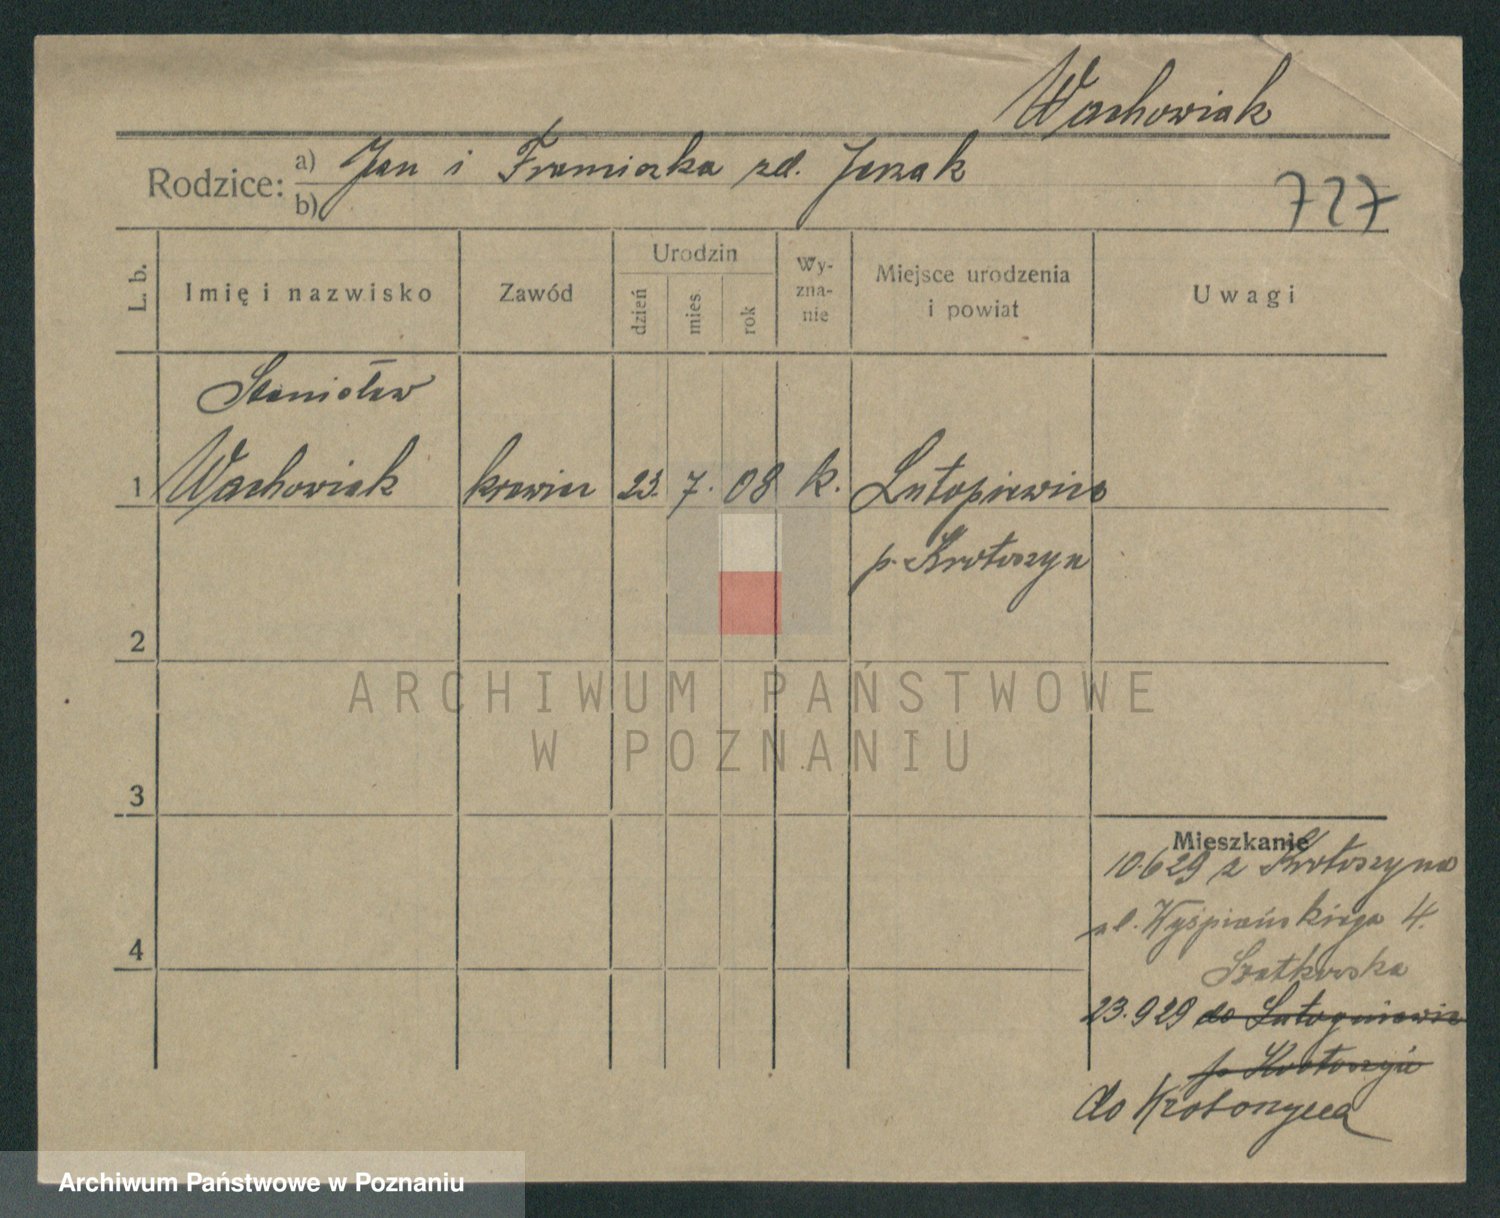 Wachowiak
Rodzice: a) Jan i Franciszka zd. Jezak
b)
727
L. b.
Imię i nazwisko
Zawód
Urodzin
dzień
mies
rok
Wy-
zna-
nie
Miejsce urodzenia
i powiat
Uwagi
Stanisław
1 Wachowiak krawiec 23. 7. 08 k. Lutogniewice
p. Krotoszyn
2
3
4
Mieszkanie
10.6 29 z Krotoszyna
ul. Wyśpiańskiego 4.
Szatkowska
23.9 29 do Lutogniewic
p. Krotoszyn
do Krotoszyna
ARCHIWUM PAŃSTWOWE
W POZNANIU
Archiwum Państwowe w Poznaniu